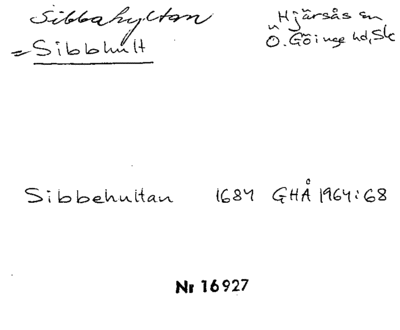 Sibbahyltan
= Sibbhult
Hjärsås sn
Ö. Göinge hd, Sk
Sibbehultan 1684 GHÅ 1964:68
Nr 16927